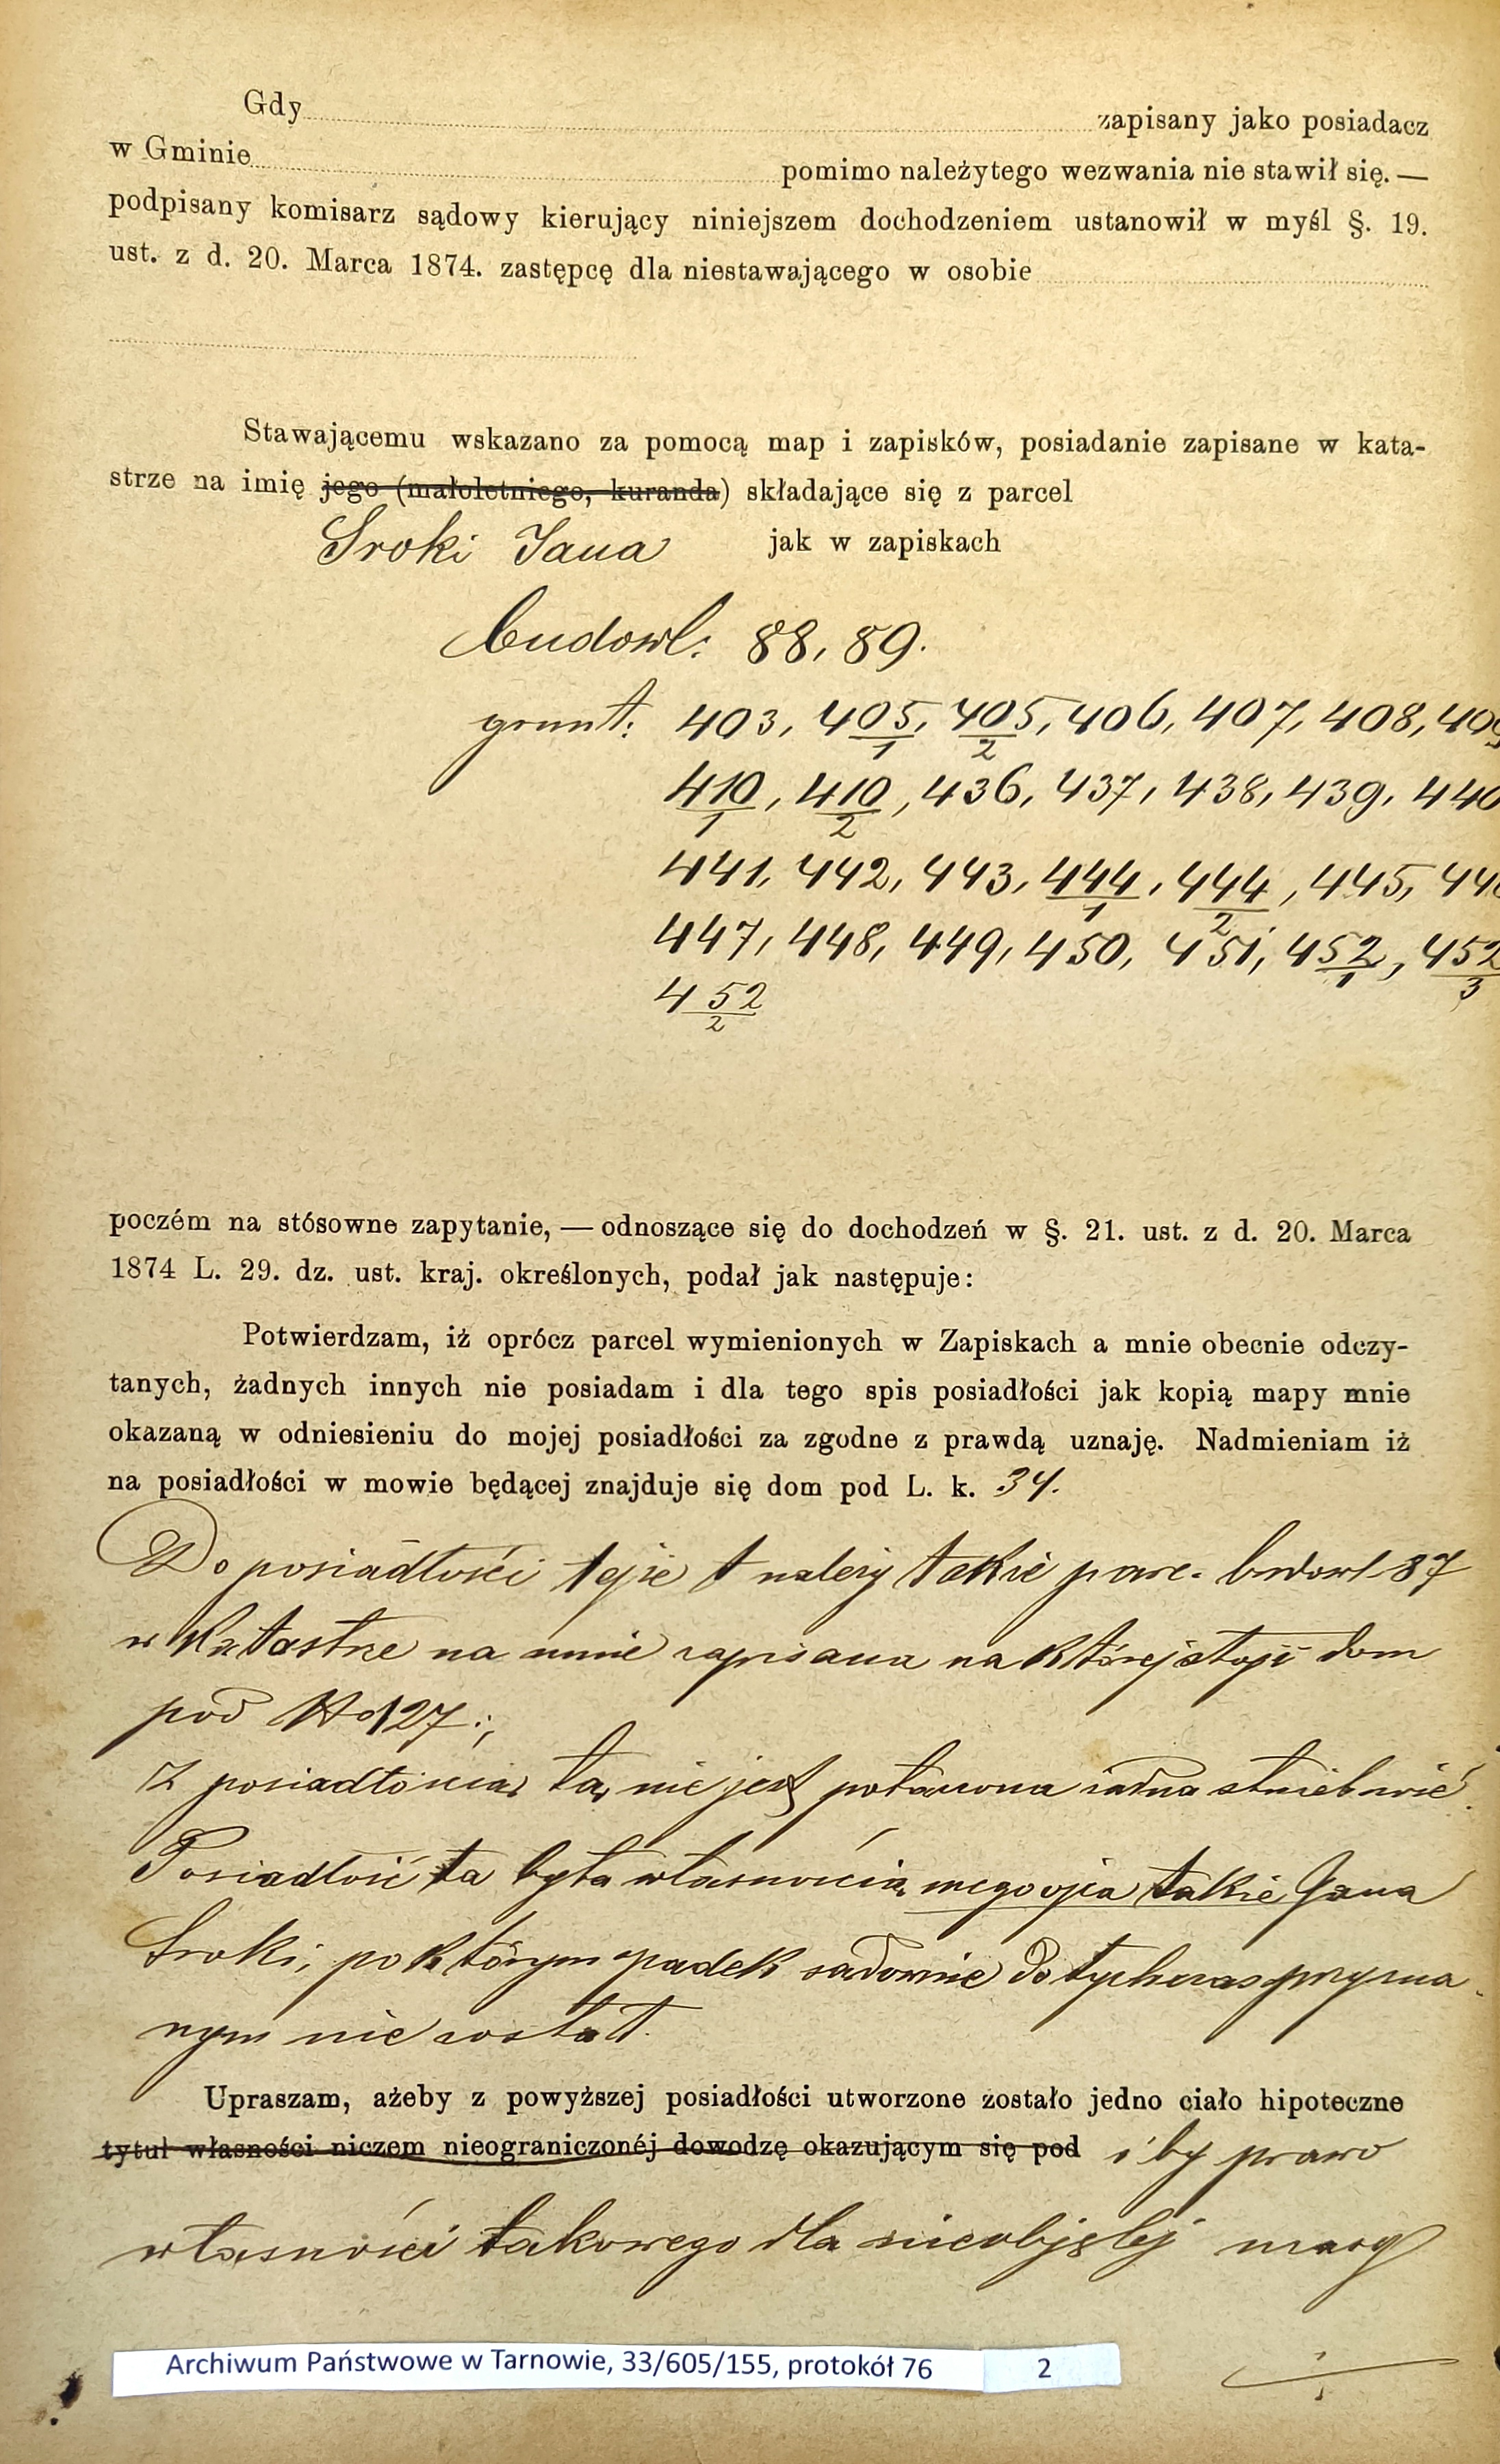 Gdy zapisany jako posiadacz
w Gminie pomimo należytego wezwania nie stawił się. —
podpisany komisarz sądowy kierujący niniejszem dochodzeniem ustanowił w myśl §. 19.
ust. z d. 20. Marca 1874. zastępcę dla niestawającego w osobie
Stawającemu wskazano za pomocą map i zapisków, posiadanie zapisane w kata-
strze na imię jego (małoletniego, kuranda) składające się z parcel
Sroki Jana jak w zapiskach
budowl: 88, 89.
grunt: 403, 405/1, 405/2, 406, 407, 408, 409
410/1, 410/2, 436, 437, 438, 439, 440
441, 442, 443, 444/1, 444/2, 445, 446
447, 448, 449, 450, 451, 452/1, 452/3
452/2
poczém na stósowne zapytanie, — odnoszące się do dochodzeń w §. 21. ust. z d. 20. Marca
1874 L. 29. dz. ust. kraj. określonych, podał jak następuje:
Potwierdzam, iż oprócz parcel wymienionych w Zapiskach a mnie obecnie odczy-
tanych, żadnych innych nie posiadam i dla tego spis posiadłości jak kopią mapy mnie
okazaną w odniesieniu do mojej posiadłości za zgodne z prawdą uznaję. Nadmieniam iż
na posiadłości w mowie będącej znajduje się dom pod L. k. 34.
Do posiadłości tejże należy także parc. budowl 87
w Katastrze na mnie zapisana na której stoji dom
pod No 127.;
Z posiadłością tą nie jest połączona żadna służebność.
Posiadłość ta była własnością mego ojca także Jana
Sroki, po którym spadek sądownie dotychczas przyzna-
nym nie został.
Upraszam, ażeby z powyższej posiadłości utworzone zostało jedno ciało hipoteczne
tytuł własności niczem nieograniczonéj dowodzę okazującym się pod i by prawo
własności takowego dla nieobjętej masy
Archiwum Państwowe w Tarnowie, 33/605/155, protokół 76 2